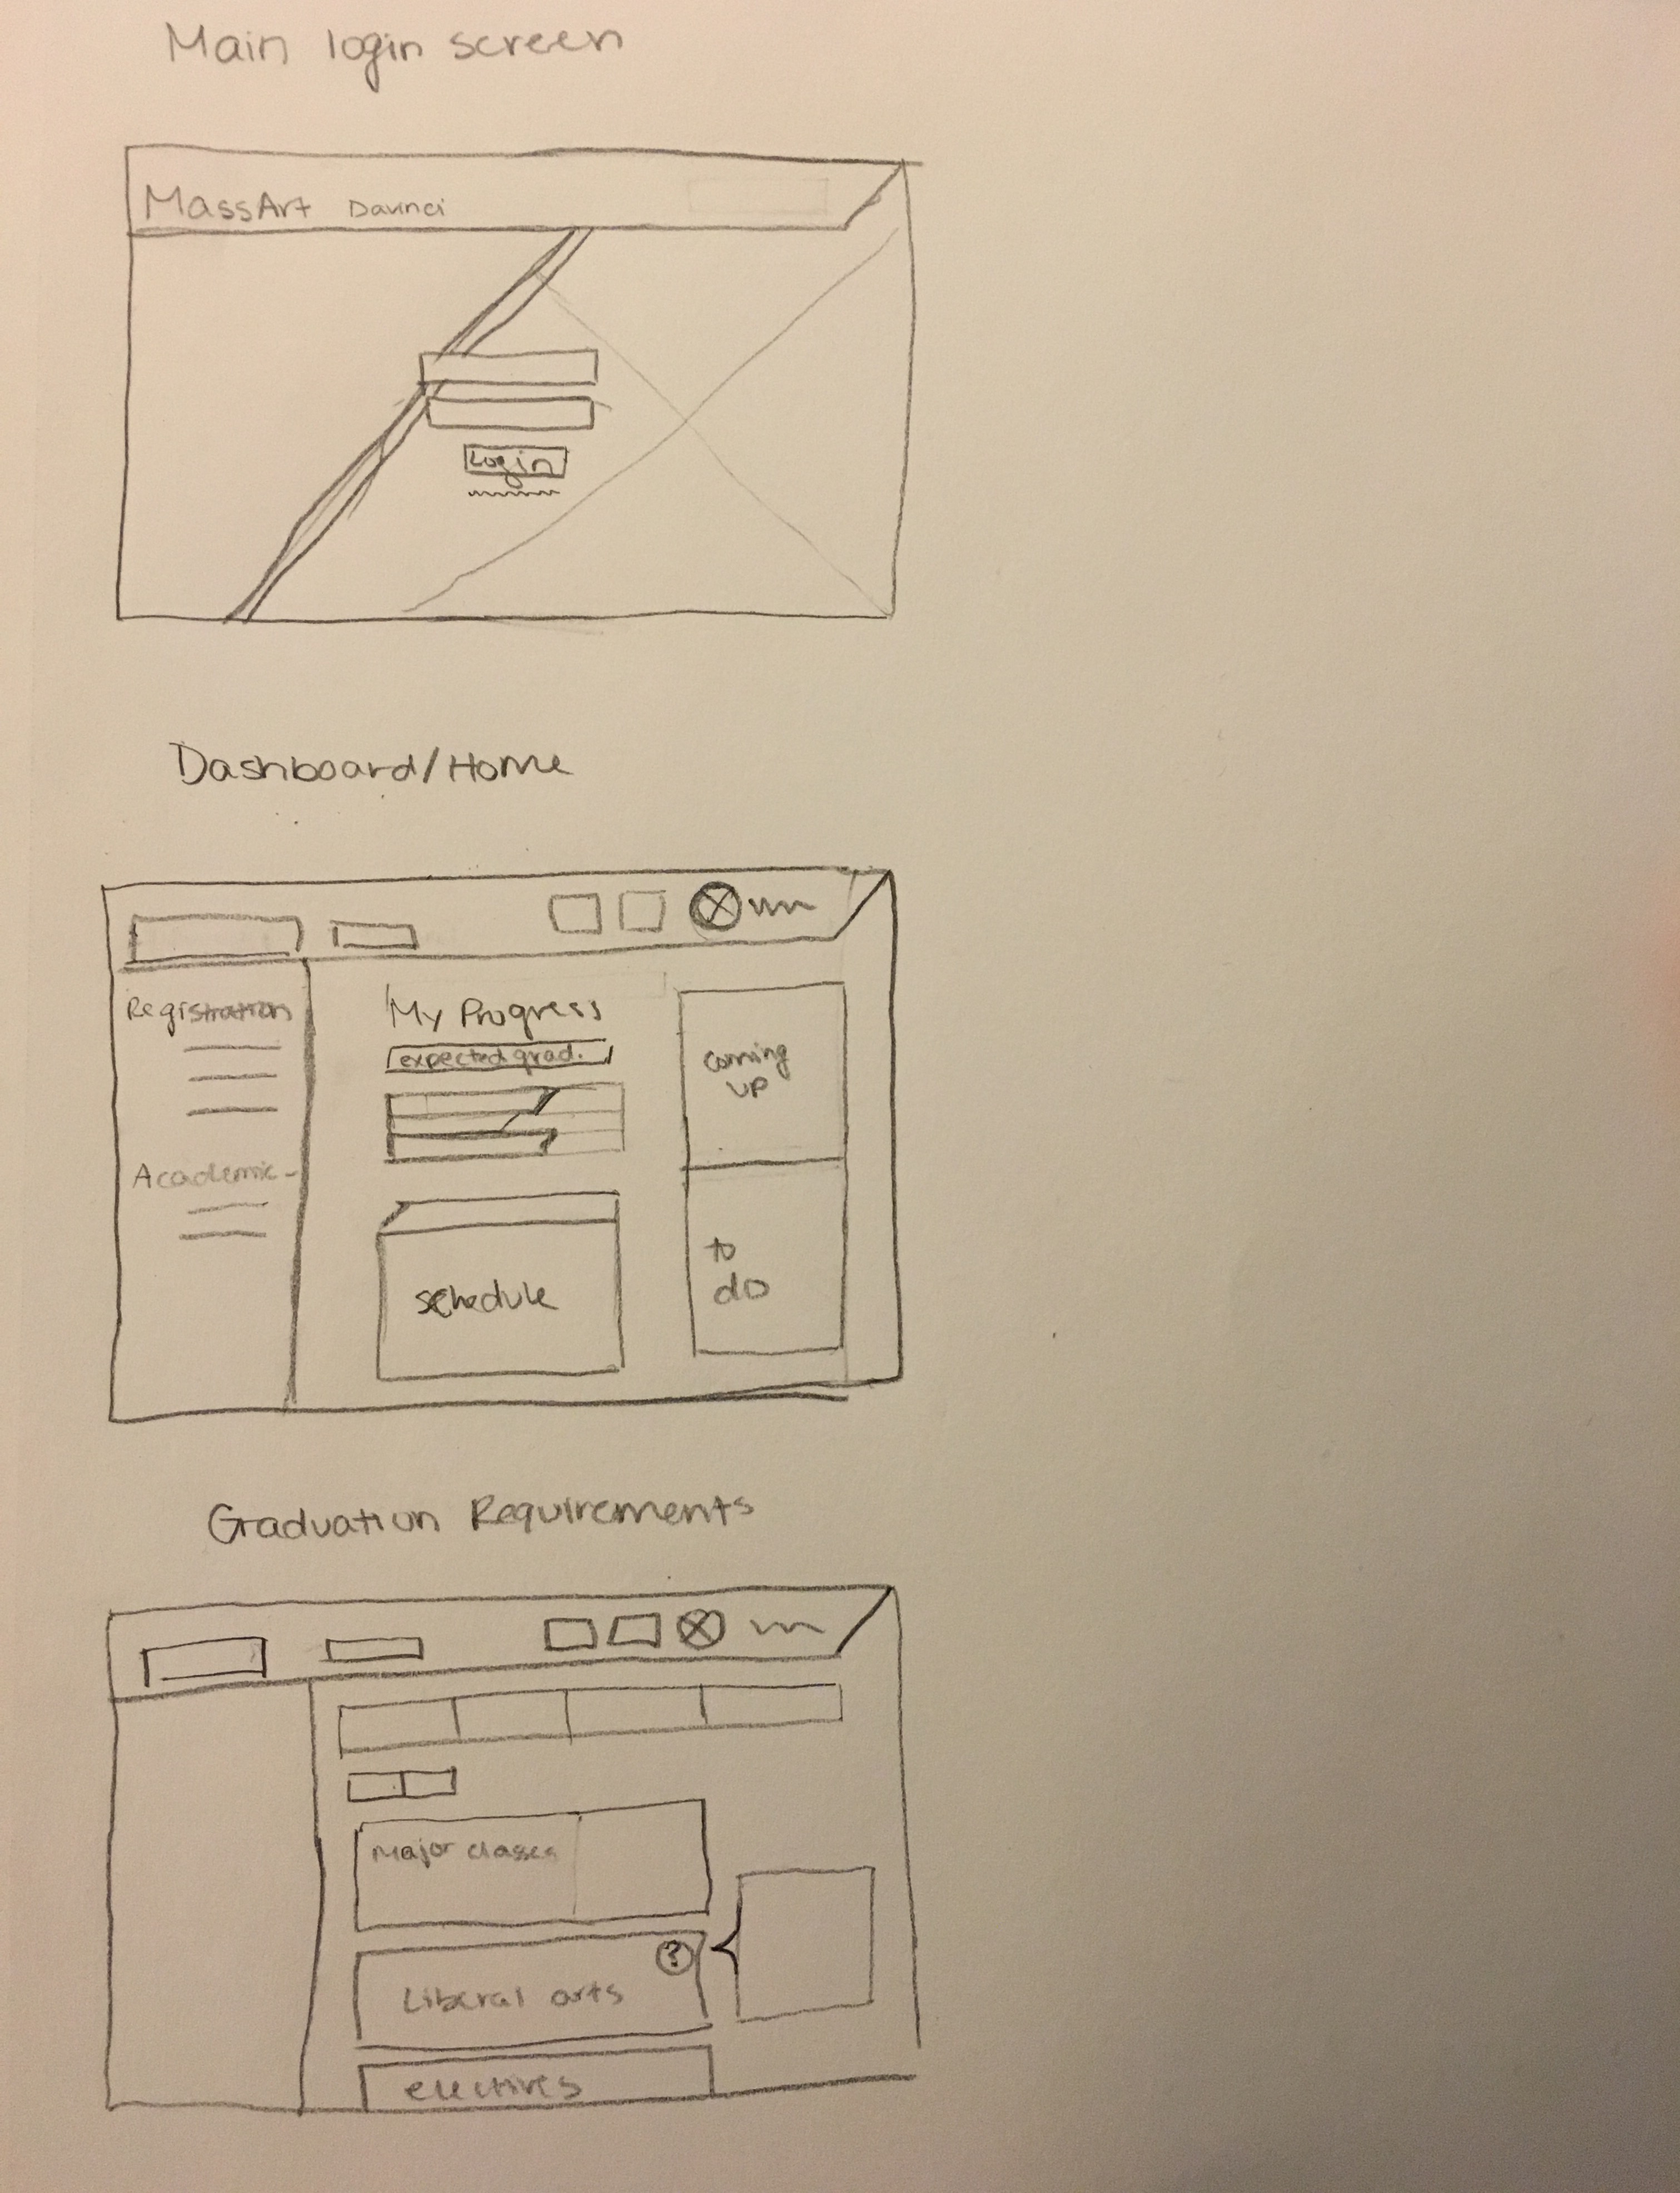 Main login screen
MassArt Davinci
Login
Dashboard/Home
Registration
My Progress
expected grad.
coming
up
Academic
to
do
schedule
Graduation Requirements
Major classes
?
Liberal arts
electives